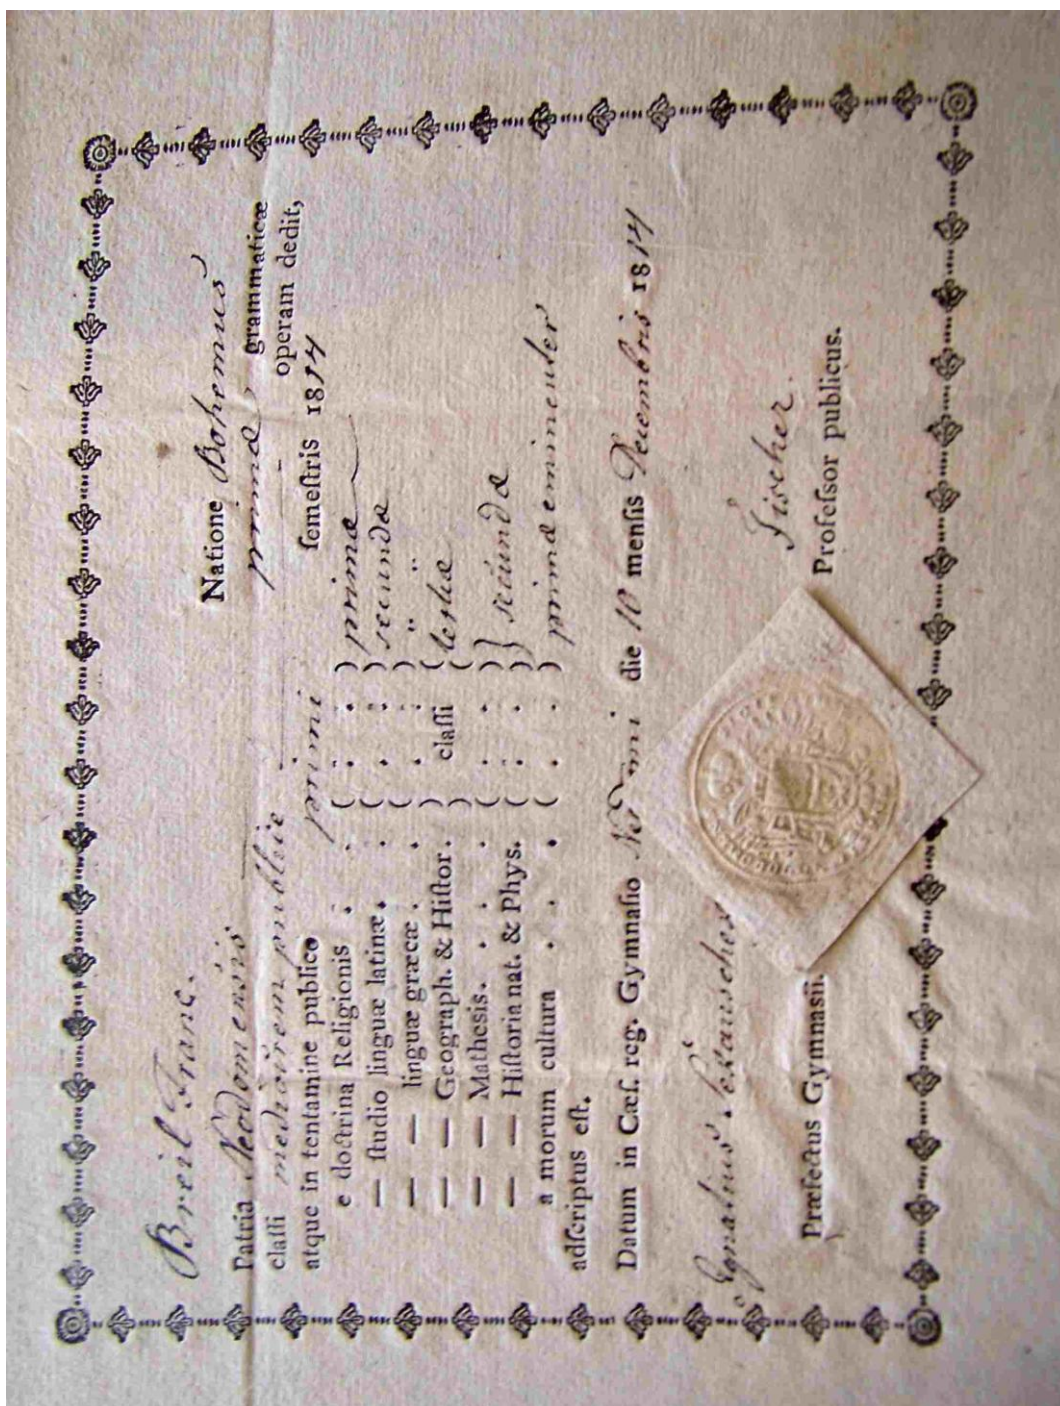 Breil Franc.
Patria Neodomensis Natione Bohemus
claſſi mediocrem publice primæ grammaticæ
operam dedit,
atque in tentamine publico primi ſemeſtris 1814
e doctrina Religionis . . ( . . ) primæ
— ſtudio linguæ latinæ . . ( . . ) secundæ
— — linguæ græcæ . . ( . . ) " "
— — Geograph. & Hiſtor. ) claſſi ( tertiæ
— — Mathesis. . . . ( . . ) } secundæ
— — Hiſtoria nat. & Phys. ( . . )
a morum cultura . . . ( . . ) primæ eminenter
adſcriptus eſt.
Datum in Cæſ. reg. Gymnaſio die 10 menſis Decembris 1814
Ignatius Fischer.
Præfectus Gymnasii. Profeſsor publicus.